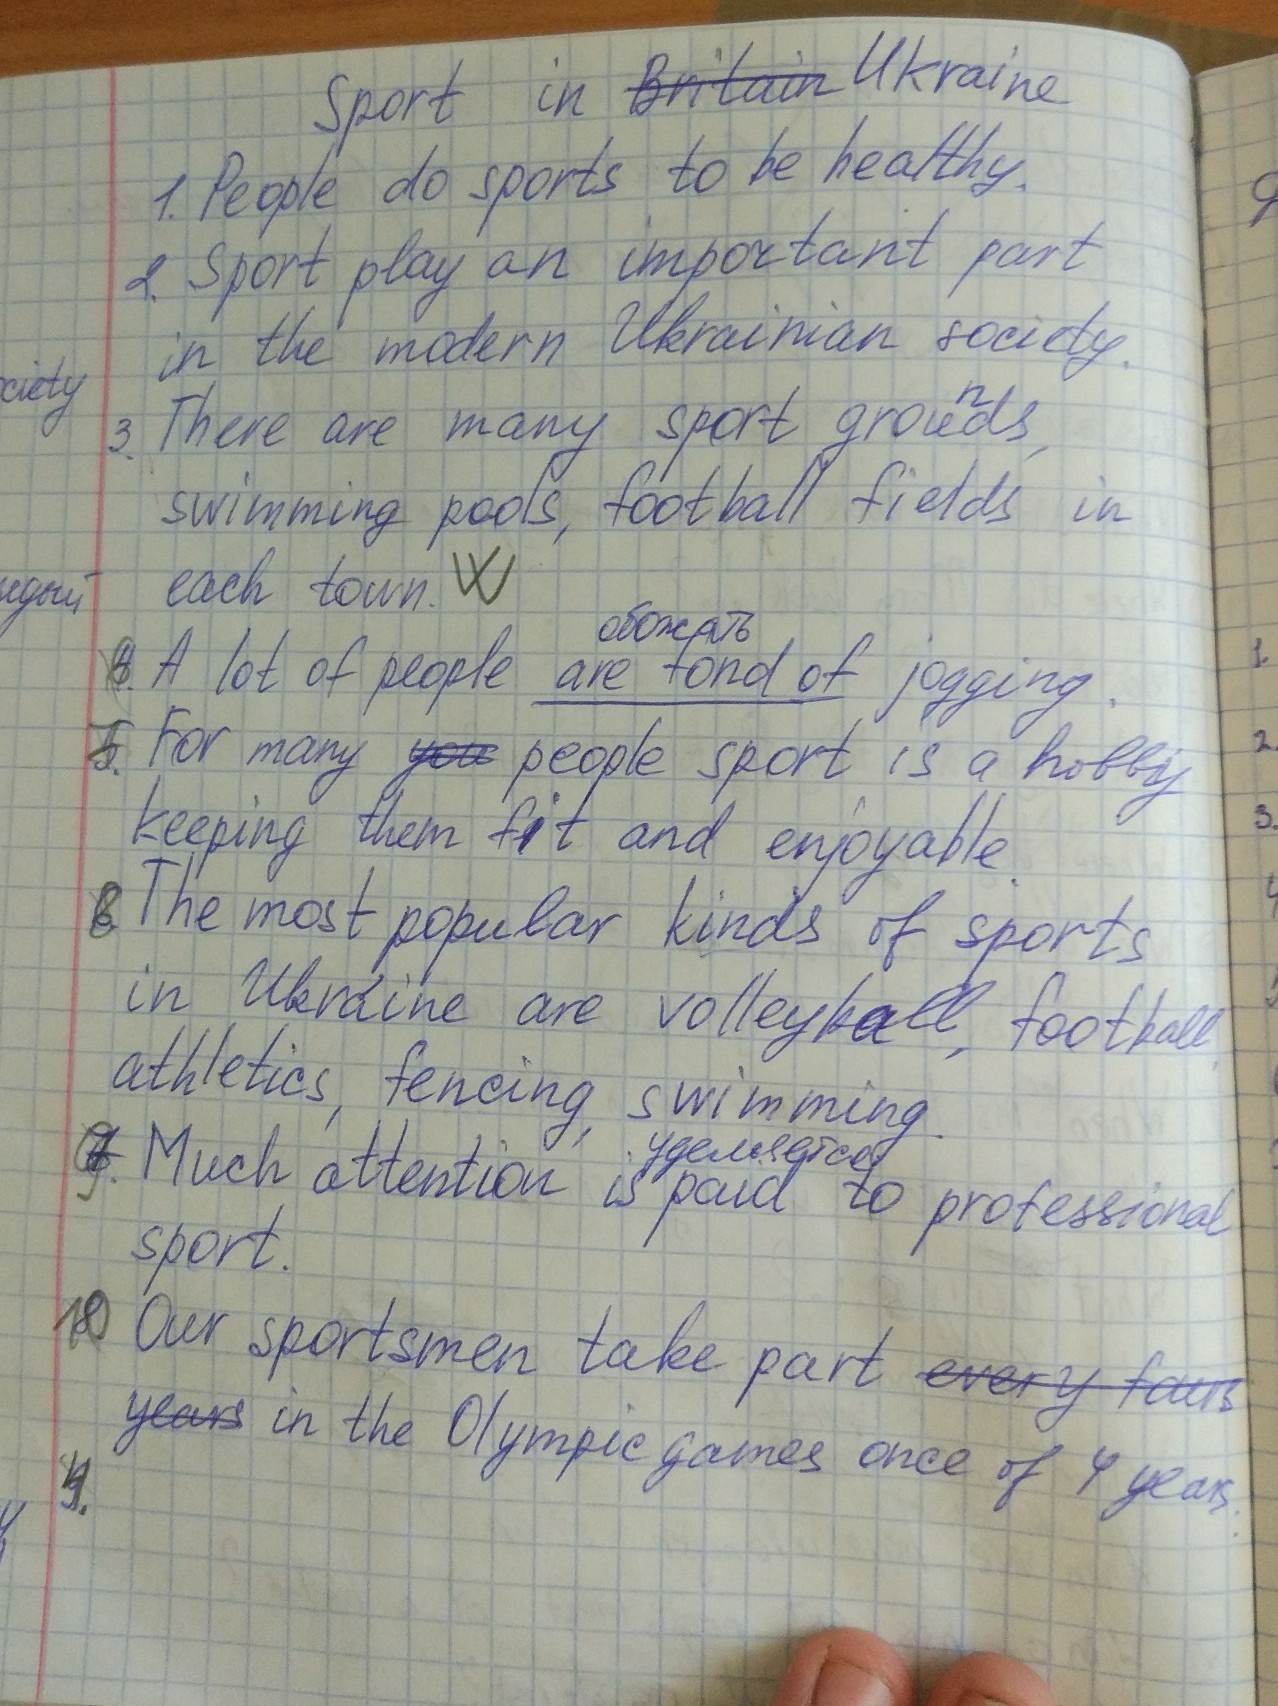 Sport in Britain Ukraine
1. People do sports to be healthy.
2. Sport play an important part
in the modern Ukrainian society.
ciety
n
3. There are many sport grouds,
swimming pools, football fields in
each town. W
обожать
A lot of people are fond of jogging.
5. For many you people sport is a hobby
keeping them fit and enjoyable.
The most popular kinds of sports
in Ukraine are volleyball, football
athletics, fencing, swimming.
уделяется
Much attention is paid to professional
sport.
Our sportsmen take part every fours
years in the Olympic games once of 4 years.
1.
2.
3.